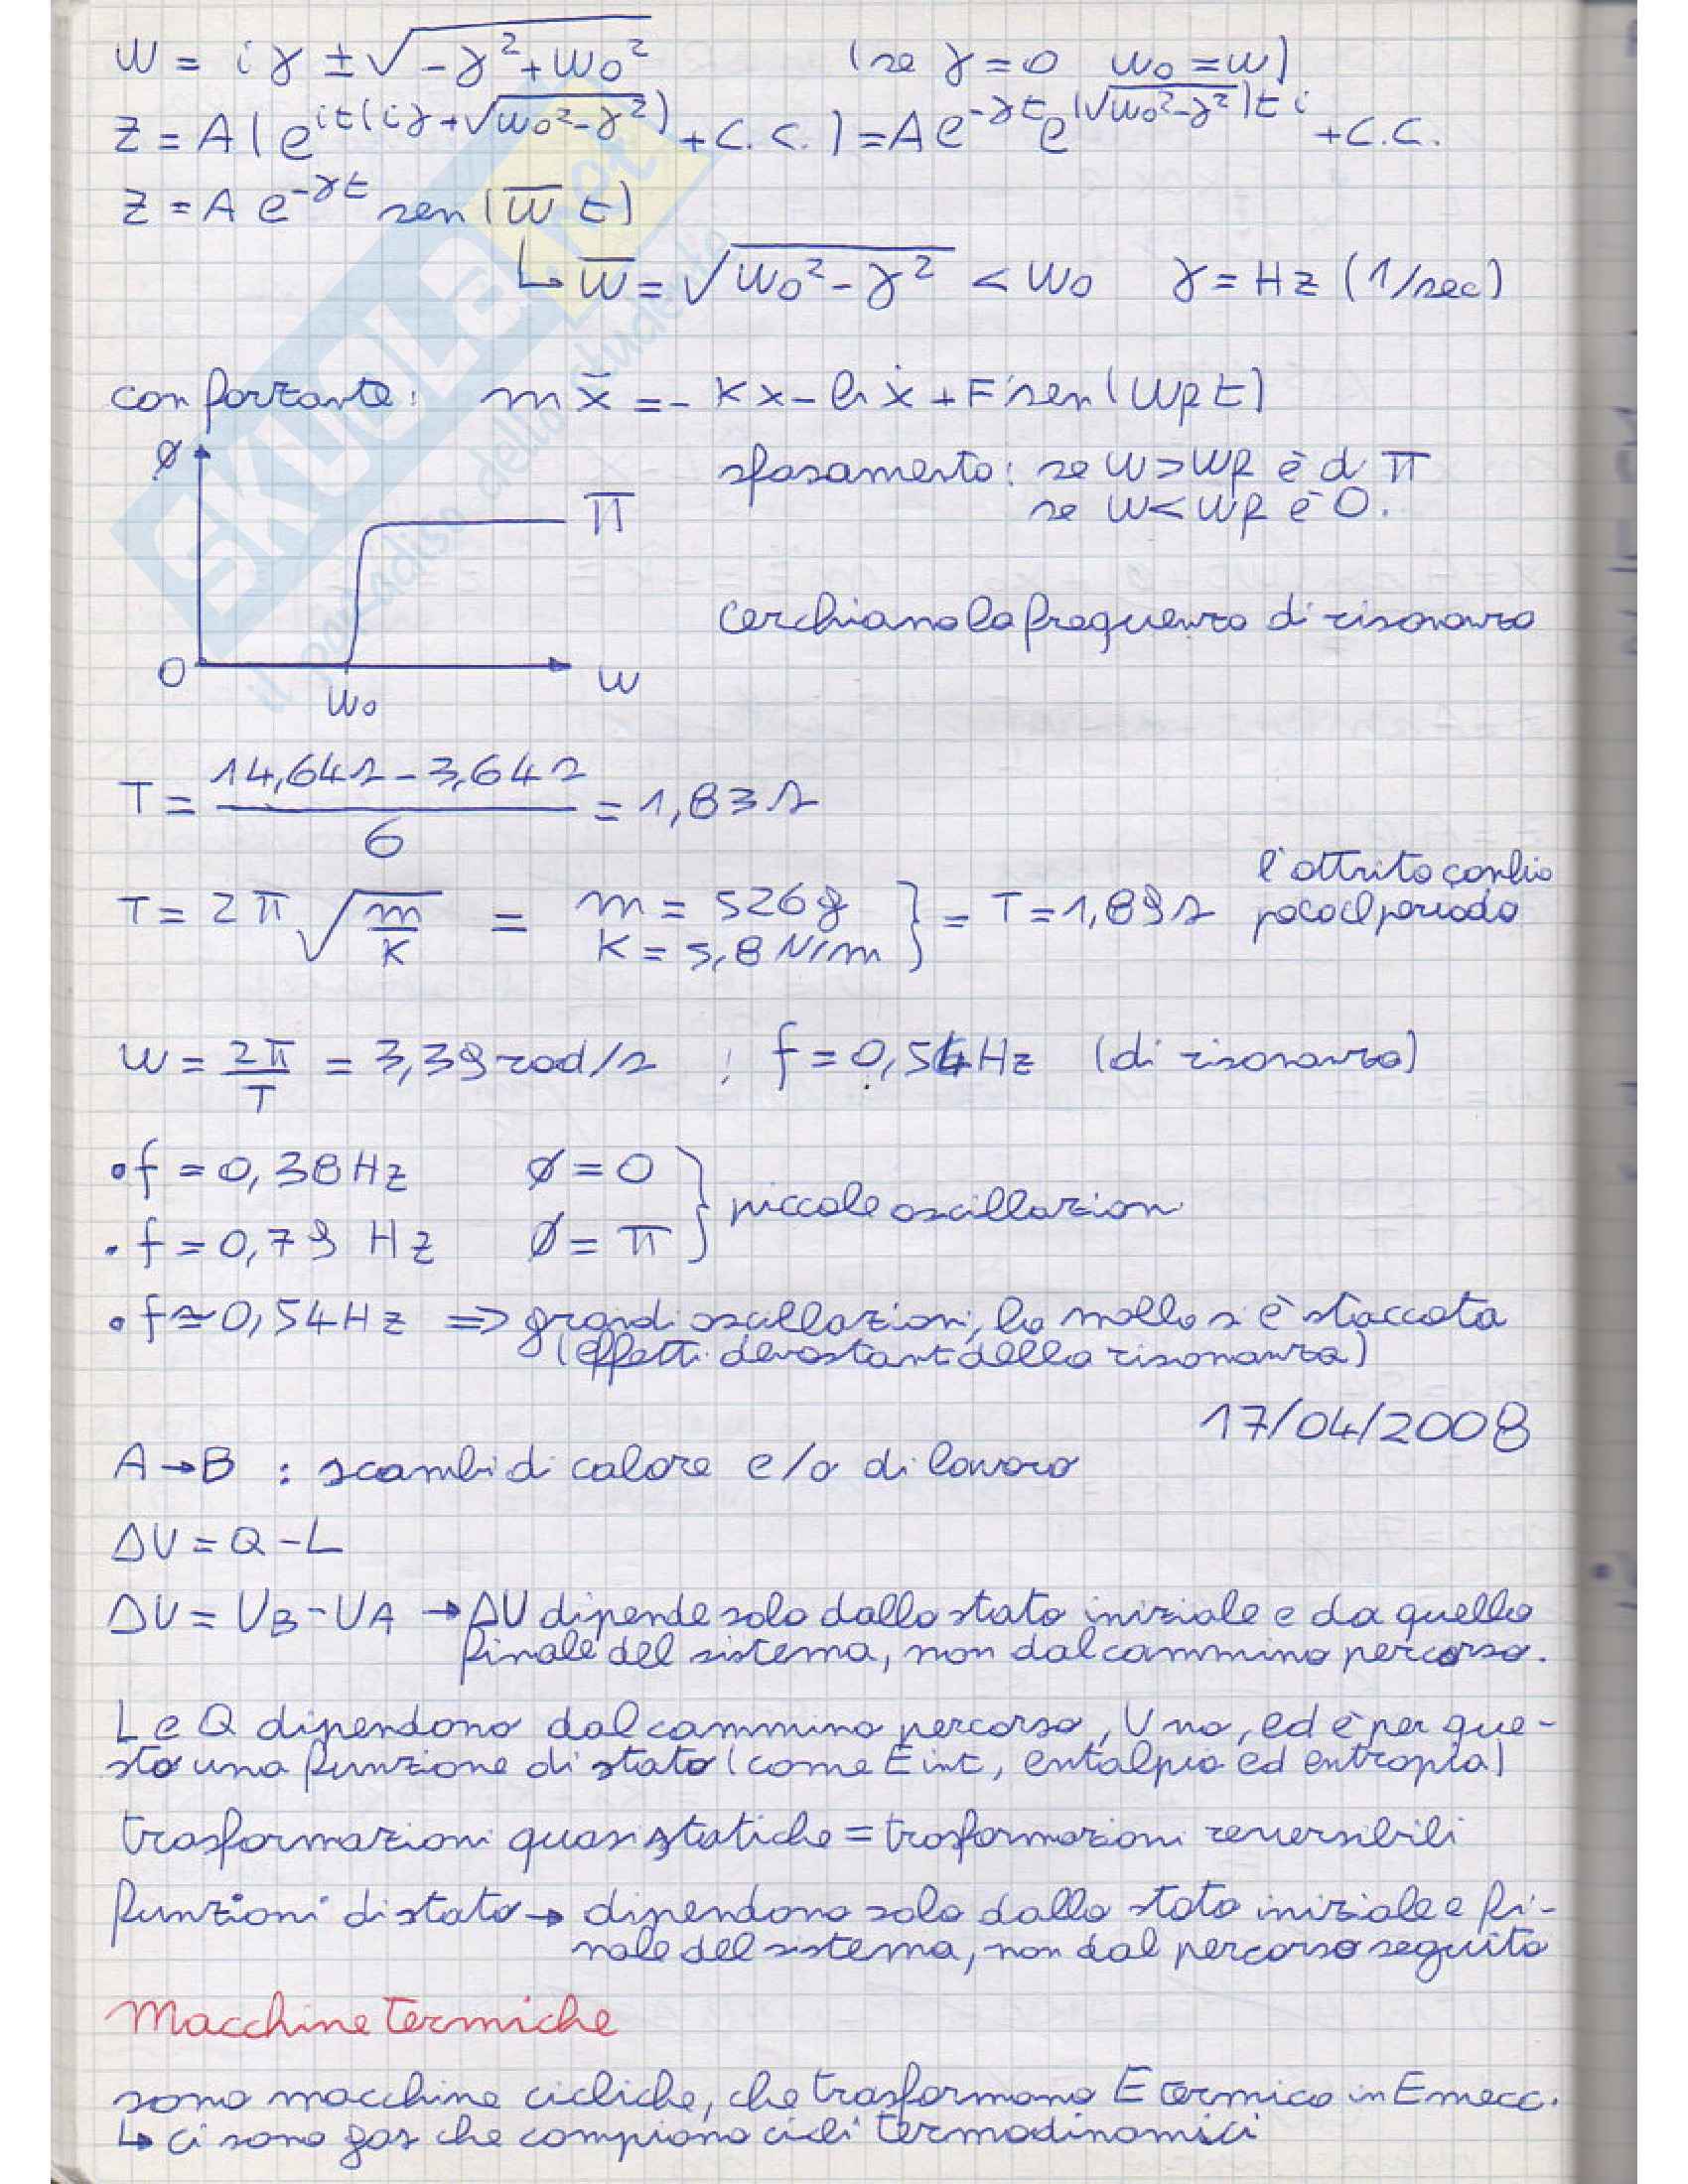 W = iγ ± √(-γ² + W₀²) (se γ = 0 W₀ = W)
Z = A(e^{it(iγ + √(W₀² - γ²))} + C.C.) = A e^{-γt} e^{(√(W₀² - γ²))t i} + C.C.
Z = A e^{-γt} sen(W̅ t)
↳ W̅ = √(W₀² - γ²) < W₀ γ = Hz (1/sec)
con forzante: m ẍ = - Kx - hẋ + F sen(Wf t)
Φ
sfasamento: se W > Wf è d π
se W < Wf è 0.
π
cerchiamo la frequenza di risonanza
0
W
W₀
T = (14,64 s - 3,64 s) / 6 = 1,83 s
T = 2π √(m/K) = m = 526 g K = 5,8 N/m } = T = 1,89 s l'attrito cambia poco il periodo
W = 2π/T = 3,39 rad/s ; f = 0,54 Hz (di risonanza)
• f = 0,38 Hz Φ = 0
• f = 0,79 Hz Φ = π } piccole oscillazioni
• f ≃ 0,54 Hz => grandi oscillazioni, la molla si è staccata
(effetti devastanti della risonanza)
17/04/2008
A → B : scambi di calore e/o di lavoro
ΔU = Q - L
ΔU = UB - UA → ΔU dipende solo dallo stato iniziale e da quello
finale del sistema, non dal cammino percorso.
L e Q dipendono dal cammino percorso, U no, ed è per que-
sto una funzione di stato (come E int, entalpia ed entropia)
trasformazioni quasistatiche = trasformazioni reversibili
funzioni di stato → dipendono solo dallo stato iniziale e fi-
nale del sistema, non dal percorso seguito
Macchine termiche
sono macchine cicliche, che trasformano E termica in E mecc.
↳ ci sono gas che compiono cicli termodinamici
SKUOLA.net
il paradiso dello studente